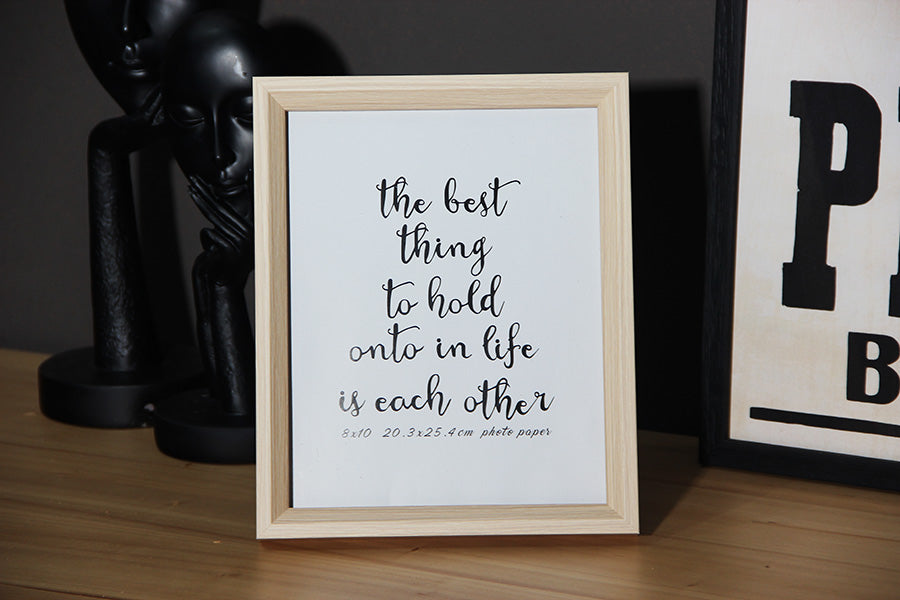 the best
thing
to hold
onto in life
is each other
8x10 20.3x25.4cm photo paper
P
B